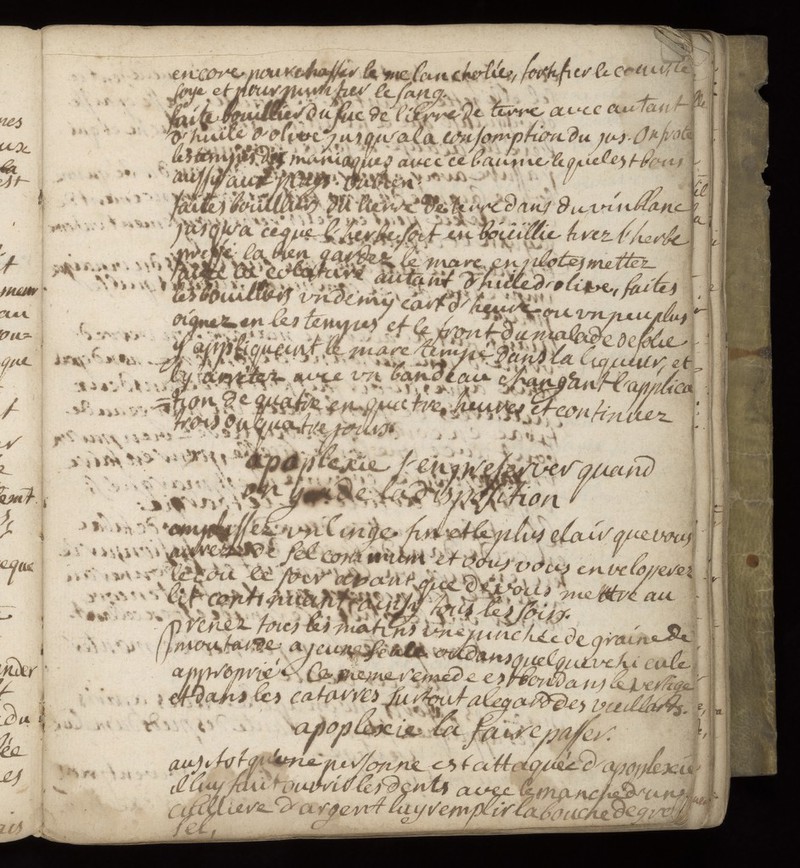 encore pour chasser la melancholie, fortifier le
foye et pour purifier le sang.
faite bouillier du suc de lierre de terre avec autant
d'huile d'olive jusqu'a la consomption du jus. On frote
les temples des maniaques avec ce baume lequel est bons
aussy aux
faites bouillir du lierre de terre dans du vin blanc
jusqu'a ceque l'herbe soit en boüeillie tirez l'herbe
pressé la bien gardez le marc en plotes mettez
dans la colature autant d'huile d'olive, faites
les bouillirs un demy cart d'heure ou un peu plus
oignez en les temples et le front du malade de folie
y appliquant le marc tempé dans la liqueur, et
l'y arretez avec un bandeau changant l'applica
=tion de quatre en quatre heures et continuez
trois ou quatre jours.
apoplexie s'en preserver quand
on y la disposition
emplissez un linge fin et le plus clair que vous
aurez de sel commun et vous vous enveloperez
le cou le soir avant que de vous mettre au
let continuant ainsy tous les soirs.
prenez tous les matins une pinchée de graine de
moutarde a jeune seule ou dans quelque vehicule
approprié. Ce meme remede est bon dans le vertige
et dans les catarres surtout a legard des vieillards.
apoplexie la faire passer.
ausitot qu'une personne est attaquée d'apoplexie
il luy faut ouvrir les dents avec le manche d'une
cuilliere d'argent luy remplir la bouche de gros
sel,